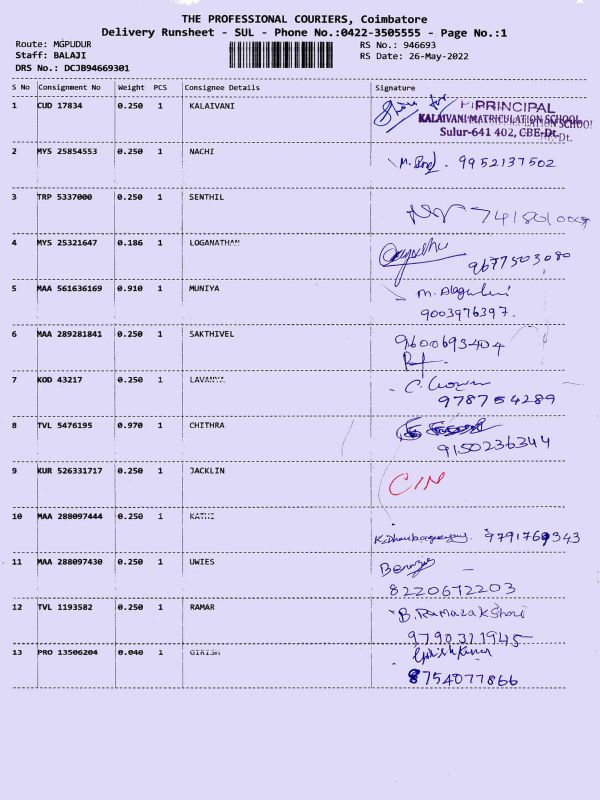 THE PROFESSIONAL COURIERS, Coimbatore
Delivery Runsheet - SUL - Phone No.:0422-3505555 - Page No.:1
Route: MGPUDUR RS No.: 946693
Staff: BALAJI RS Date: 26-May-2022
DRS No.: DCJB94669301
S No Consignment No Weight PCS Consignee Details Signature
1 CUD 17834 0.250 1 KALAIVANI
PRINCIPAL
KALAIVANI MATRICULATION SCHOOL
Sulur-641 402, CBE-Dt.
2 MYS 25854553 0.250 1 NACHI
9952137502
3 TRP 5337000 0.250 1 SENTHIL
4 MYS 25321647 0.186 1 LOGANATHAM
9677503080
5 MAA 561636169 0.910 1 MUNIYA
9003976397.
6 MAA 289281841 0.250 1 SAKTHIVEL
9600693404
7 KOD 43217 0.250 1 LAVANYA
9787754289
8 TVL 5476195 0.970 1 CHITHRA
9150236344
9 KUR 526331717 0.250 1 JACKLIN
10 MAA 288097444 0.250 1 KATHI
9791769343
11 MAA 288097430 0.250 1 UWIES
8220672203
12 TVL 1193582 0.250 1 RAMAR
9790311945
13 PRO 13506204 0.040 1 GIRISH
8754077866